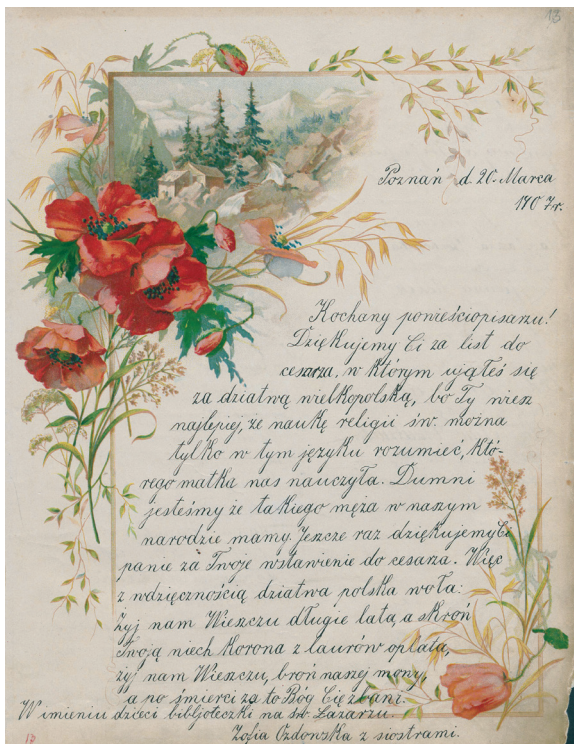 13
Poznań d. 20. Marca
1907r.
Kochany powieściopisarzu!
Dziękujemy Ci za list do
cesarza, w którym ująłeś się
za dziatwą wielkopolską, bo Ty wiesz
najlepiej, że naukę religii św. można
tylko w tym języku rozumieć, któ-
rego matka nas nauczyła. Dumni
jesteśmy że takiego męża w naszym
narodzie mamy. Jeszcze raz dziękujemy Ci
panie za Twoje wstawienie do cesarza. Więc
z wdzięcznością dziatwa polska woła:
Żyj nam Wieszczu długie lata, a skroń
Twoją niech korona z laurów oplata,
żyj nam Wieszczu, broń naszej mowy,
a po śmierci za to Bóg Cię zbawi.
W imieniu dzieci bibljoteczki na św. Łazarzu.
Zofia Ozdowska z siostrami.